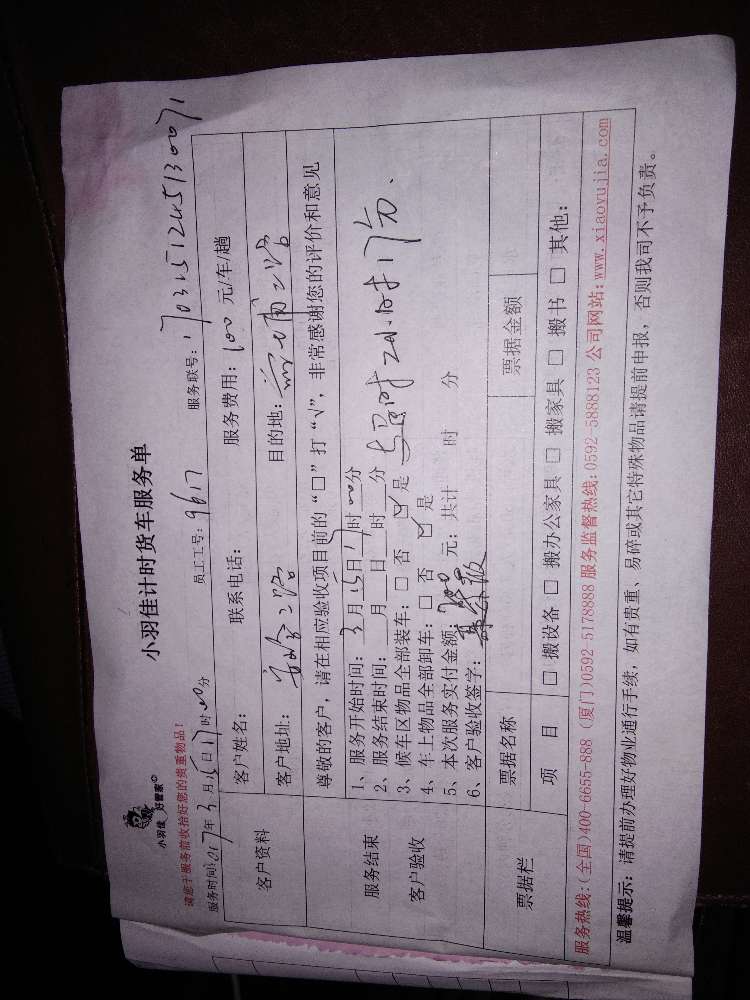 小羽佳 好管家
小羽佳计时货车服务单
请您于服务前收拾好您的贵重物品!
服务时间:2017年3月15日17时00分 员工工号:9617 服务联号:
客户资料
客户姓名: 联系电话: 服务费用:100元/车/趟
客户地址: 二路 目的地: 二路
尊敬的客户,请在相应验收项目前的“□”打“√”,非常感谢您的评价和意见
服务结束
客户验收
1、服务开始时间:3月15日17时00分
2、服务结束时间: 月 日 时 分
3、候车区物品全部装车:□ 否 ☑ 是
4、车上物品全部卸车:□ 否 ☑ 是
5、本次服务实付金额: 元;共计 时 分
6、客户验收签字:
票据栏
票据名称 票据金额
项 目 □ 搬设备 □ 搬办公家具 □ 搬家具 □ 搬书 □ 其他:
服务热线:(全国)400-6655-888 (厦门)0592 5178888 服务监督热线:0592-5888123 公司网站:www.xiaoyujia.com
温馨提示:请提前办理好物业通行手续,如有贵重、易碎或其它特殊物品请提前申报,否则我司不予负责。